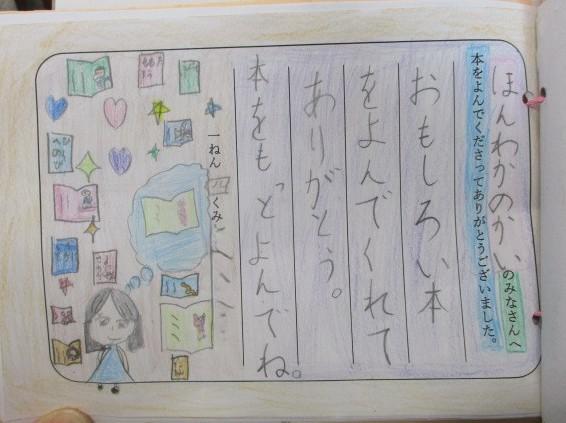 ほんわかのかいのみなさんへ
本をよんでくださってありがとうございました。
おもしろい本
をよんでくれて
ありがとう。
本をもっとよんでね。
一ねん 四くみ